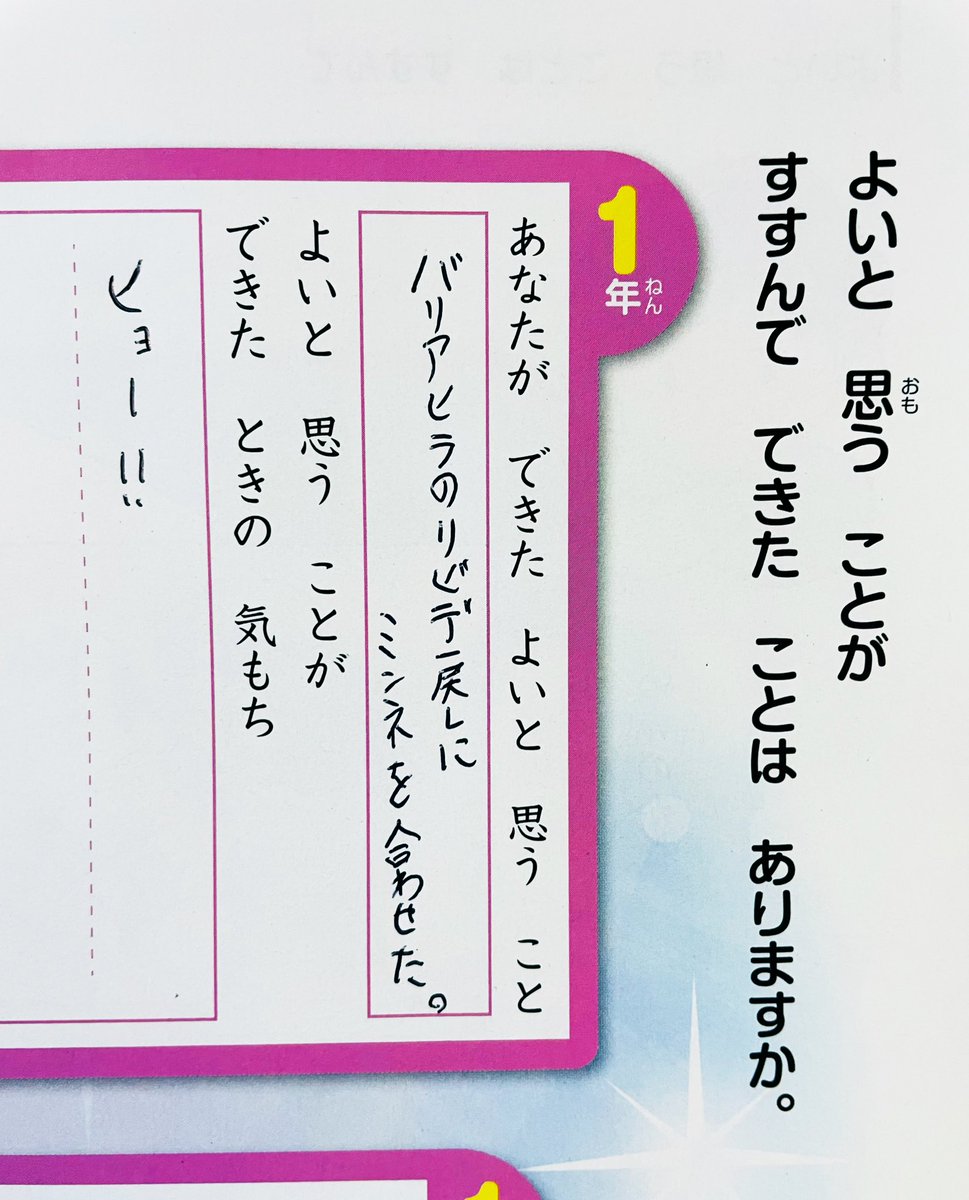 よいと 思う ことが
おも
すすんで できた ことは ありますか。
1年
ねん
あなたが できた よいと 思う こと
バリアヒラのリビデ戻しに
ミンネを合わせた。
よいと 思う ことが
できた ときの 気もち
ヒョー!!
1